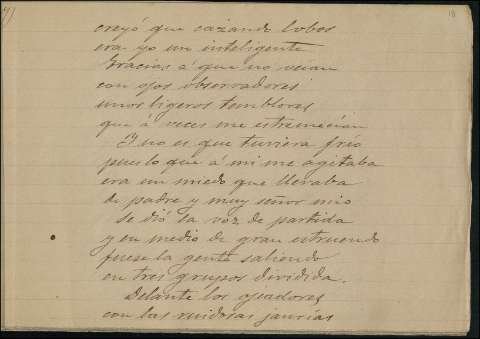 creyó que cazando lobos
era yo un inteligente
Gracias á que no veian
con ojos observadores
unos ligeros temblores
que á veces me estremecian
Y no es que tuviera frio
pues lo que á mi me agitaba
era un miedo que llevaba
de padre y muy señor mio
se dió la voz de partida
y en medio de gran estruendo
fuese la gente saliendo
en tres grupos dividida.
Delante los ojeadores
con las ruidosas jaurias